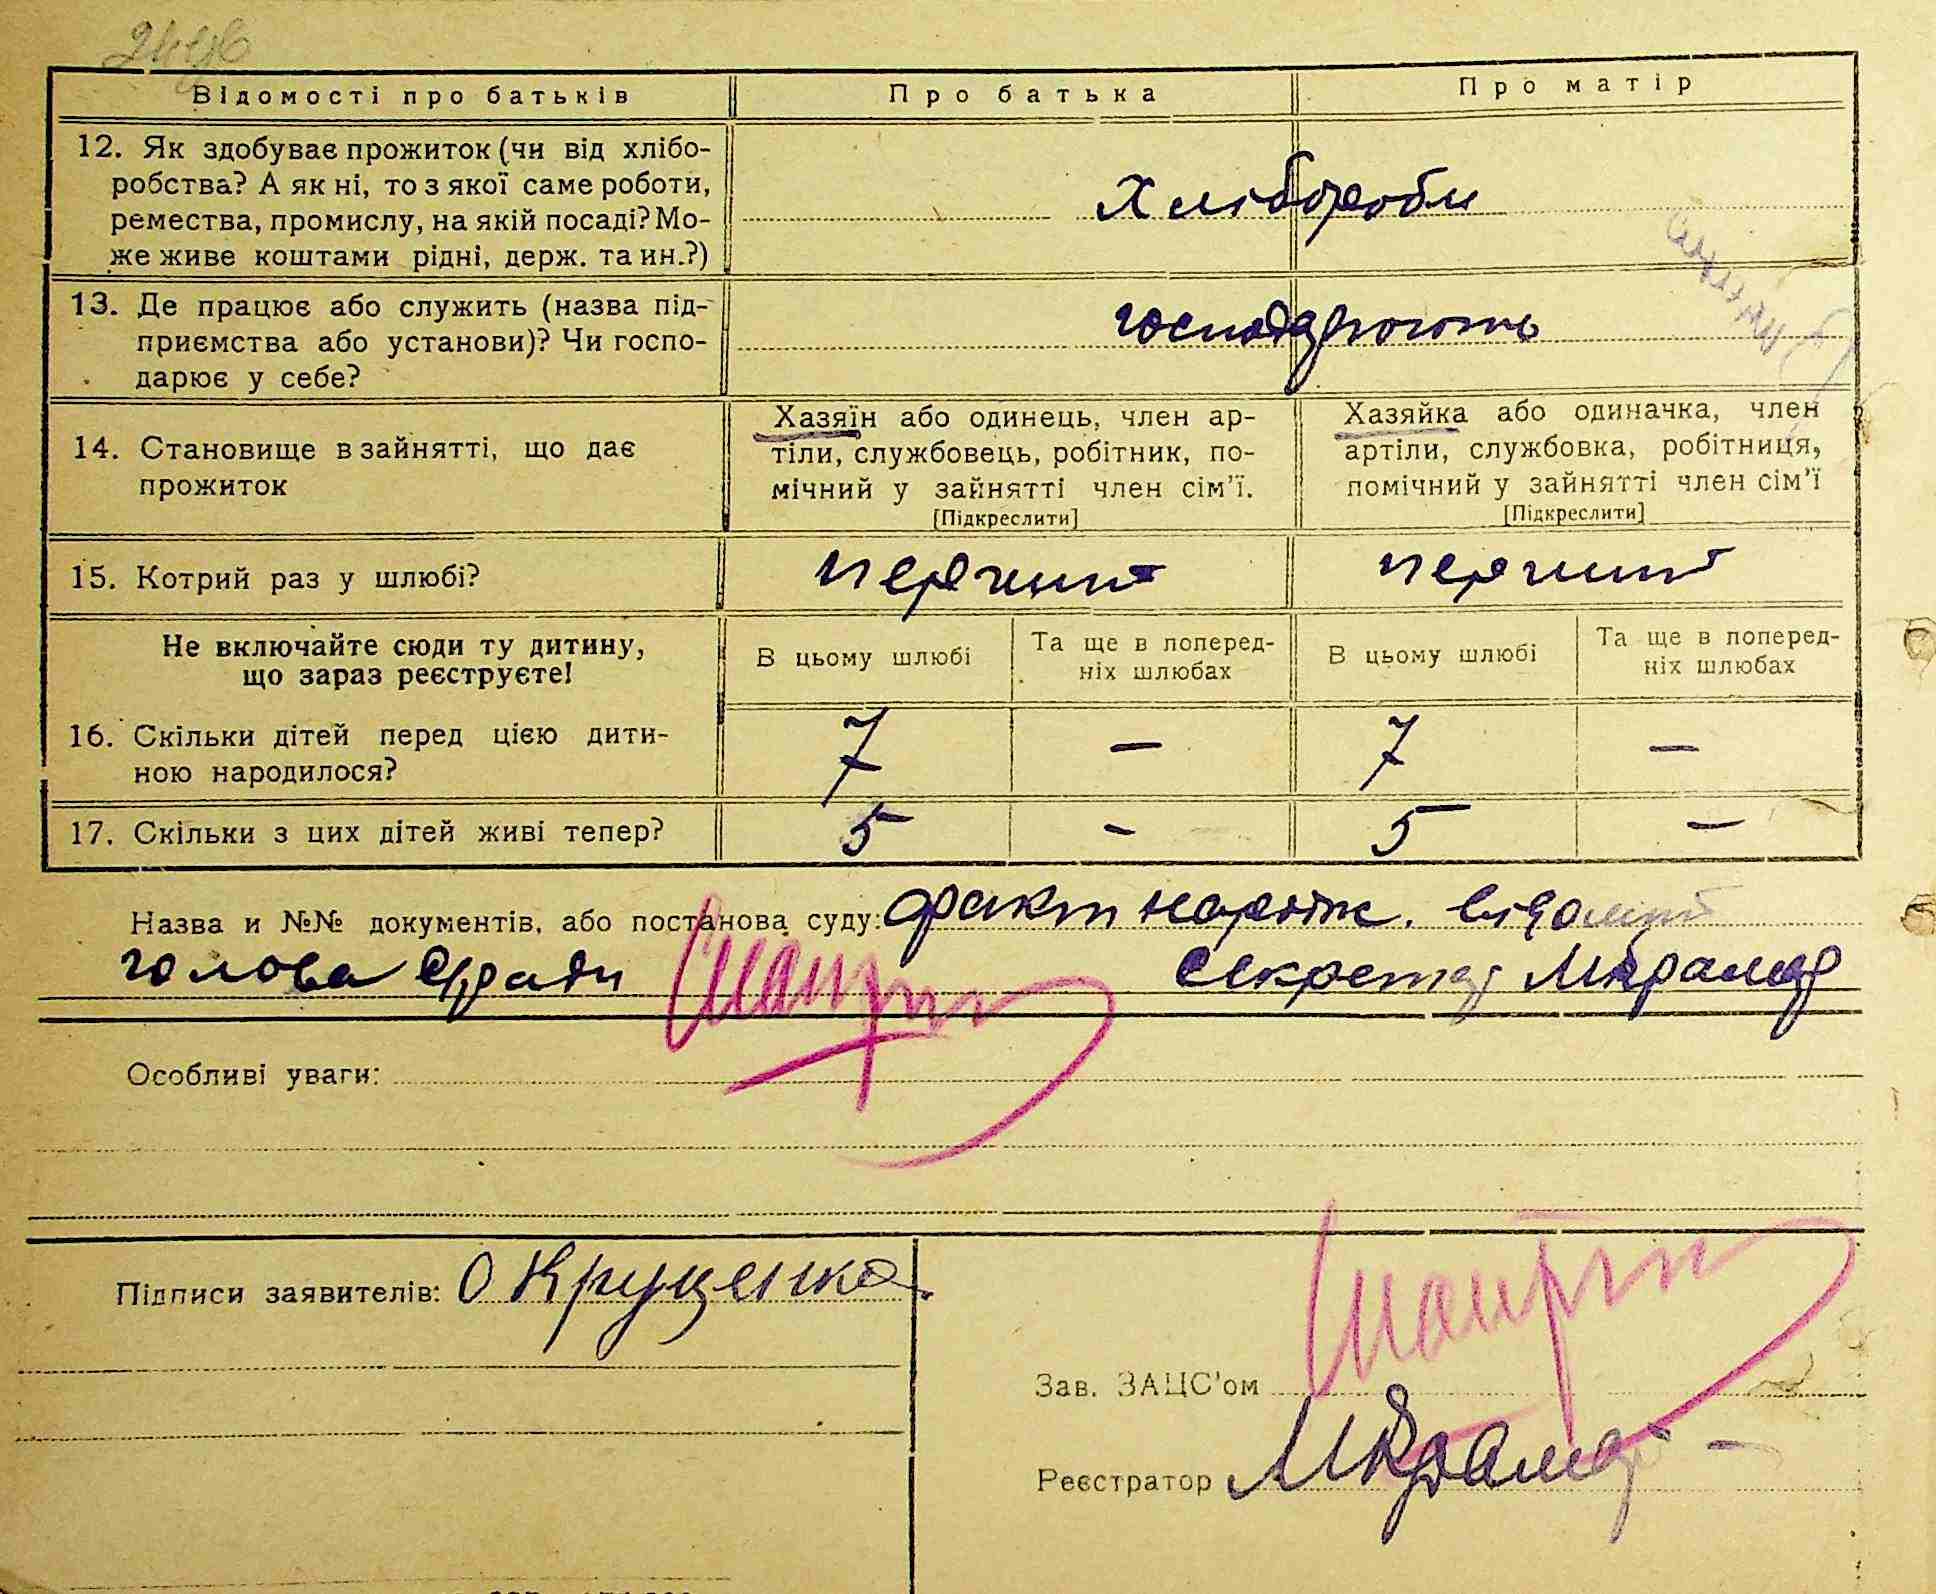 Відомості про батьків
Про батька
Про матір
12. Як здобуває прожиток (чи від хлібо-
робства? А як ні, то з якої саме роботи,
ремества, промислу, на якій посаді? Мо-
же живе коштами рідні, держ. та ин.?)
Хлібороби
13. Де працює або служить (назва під-
приємства або установи)? Чи госпо-
дарює у себе?
господарюють
14. Становище в зайнятті, що дає
прожиток
Хазяїн або одинець, член ар-
тіли, службовець, робітник, по-
мічний у зайнятті член сім'ї.
[Підкреслити]
Хазяйка або одиначка, член
артіли, службовка, робітниця,
помічний у зайнятті член сім'ї
[Підкреслити]
15. Котрий раз у шлюбі?
перший
перший
Не включайте сюди ту дитину,
що зараз реєструєте!
В цьому шлюбі
Та ще в поперед-
ніх шлюбах
В цьому шлюбі
Та ще в поперед-
ніх шлюбах
16. Скільки дітей перед цією дити-
ною народилося?
7 — 7 —
17. Скільки з цих дітей живі тепер?
5 - 5 —
Назва и №№ документів, або постанова суду: факт народж. відомий
голова с/ради секретар
Особливі уваги:
Підписи заявителів: О Круценко
Зав. ЗАЦС'ом
Реєстратор